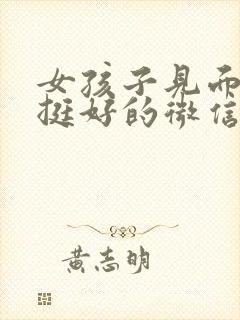 女孩子见而
挺好的微信
黄志明